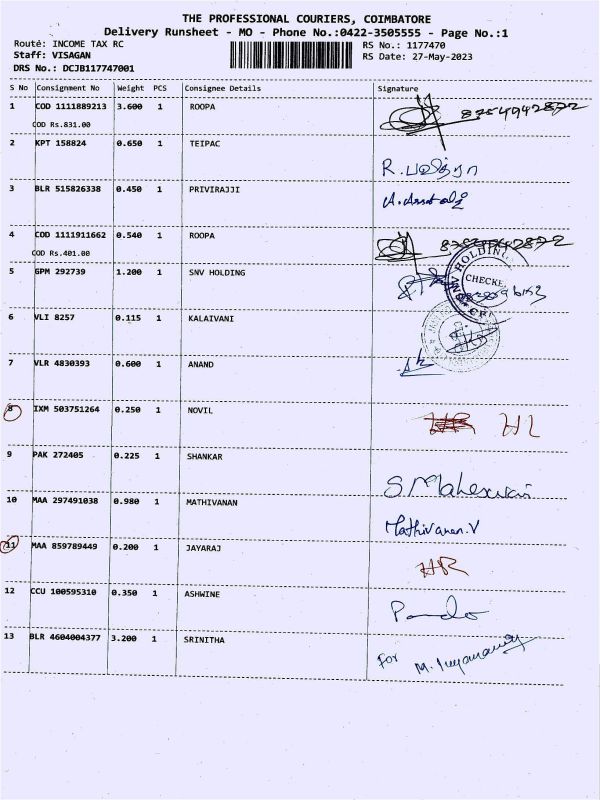 THE PROFESSIONAL COURIERS, COIMBATORE
Delivery Runsheet - MO - Phone No.:0422-3505555 - Page No.:1
Route: INCOME TAX RC RS No.: 1177470
Staff: VISAGAN RS Date: 27-May-2023
DRS No.: DCJB117747001
S No Consignment No Weight PCS Consignee Details Signature
1 COD 1111889213 3.600 1 ROOPA
COD Rs.831.00
2 KPT 158824 0.650 1 TEIPAC
3 BLR 515826338 0.450 1 PRIVIRAJJI
4 COD 1111911662 0.540 1 ROOPA
COD Rs.401.00
5 GPM 292739 1.200 1 SNV HOLDING
6 VLI 8257 0.115 1 KALAIVANI
7 VLR 4830393 0.600 1 ANAND
8 IXM 503751264 0.250 1 NOVIL
9 PAK 272405 0.225 1 SHANKAR
10 MAA 297491038 0.980 1 MATHIVANAN Mathivanan.V
11 MAA 859789449 0.200 1 JAYARAJ HR
12 CCU 100595310 0.350 1 ASHWINE
13 BLR 4604004377 3.200 1 SRINITHA For